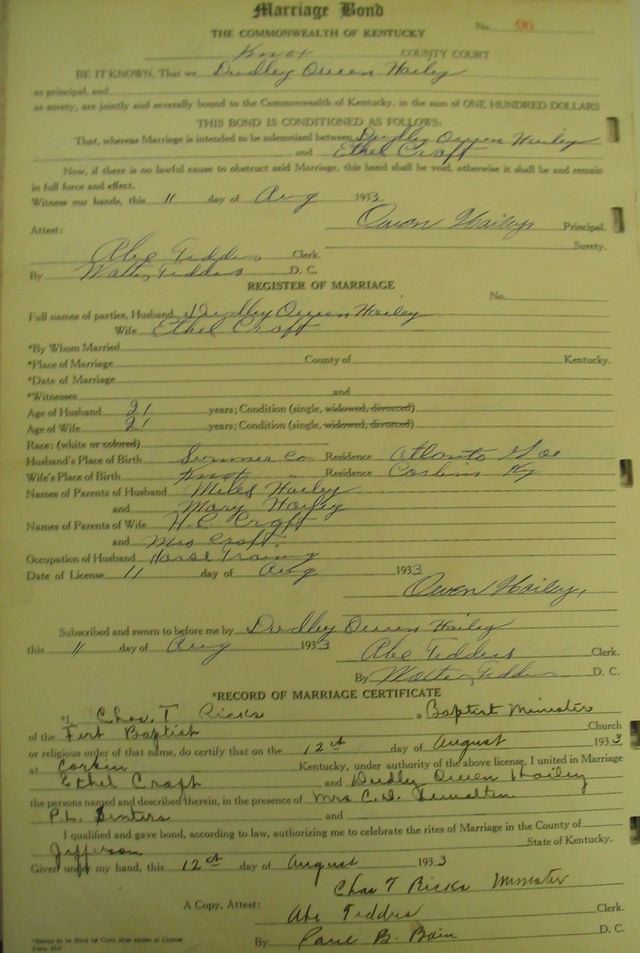 Marriage Bond
No.
THE COMMONWEALTH OF KENTUCKY
Knox COUNTY COURT
BE IT KNOWN, That we Dudley Owen Hailey
as principal, and
as surety, are jointly and severally bound to the Commonwealth of Kentucky, in the sum of ONE HUNDRED DOLLARS
THIS BOND IS CONDITIONED AS FOLLOWS:
That, whereas Marriage is intended to be solemnized between Dudley Owen Hailey
and Ethel Craft
Now, if there is no lawful cause to obstruct said Marriage, this bond shall be void, otherwise it shall be and remain
in full force and effect.
Witness our hands, this 11 day of Aug 1933.
Owen Hailey Principal.
Attest: Surety.
Abe Tedders Clerk.
By Walter Tedders D. C.
REGISTER OF MARRIAGE
No.
Full names of parties, Husband Dudley Owen Hailey
Wife Ethel Craft
*By Whom Married
*Place of Marriage County of Kentucky.
*Date of Marriage
*Witnesses and
Age of Husband 21 years; Condition (single, widowed, divorced)
Age of Wife 21 years; Condition (single, widowed, divorced)
Race: (white or colored)
Husband's Place of Birth Sumner Co Residence Atlanta
Wife's Place of Birth Knox " Residence Corbin Ky
Names of Parents of Husband Miles Hailey
and Mary Hailey
Names of Parents of Wife H.C. Craft
and Mrs Craft.
Occupation of Husband Horse Training
Date of License 11 day of Aug 1933
Owen Hailey,
Subscribed and sworn to before me by Dudley Owen Hailey
this 11 day of Aug 1933 Abe Tedders Clerk.
By Walter Tedders D. C.
*RECORD OF MARRIAGE CERTIFICATE
*I, Chas. T Ricks a Baptist Minister
of the First Baptist Church
or religious order of that name, do certify that on the 12th day of August 1933
at Corbin Kentucky, under authority of the above license, I united in Marriage
Ethel Craft and Dudley Owen Hailey
the persons named and described therein, in the presence of Mrs C. D.
P.L. and
I qualified and gave bond, according to law, authorizing me to celebrate the rites of Marriage in the County of
Jefferson State of Kentucky.
Given under my hand, this 12th day of August 1933
Chas T Ricks Minister
A Copy, Attest: Abe Tedders Clerk.
By Paul B. Bain D. C.
*Blanks to be filed by Clerk after return of License